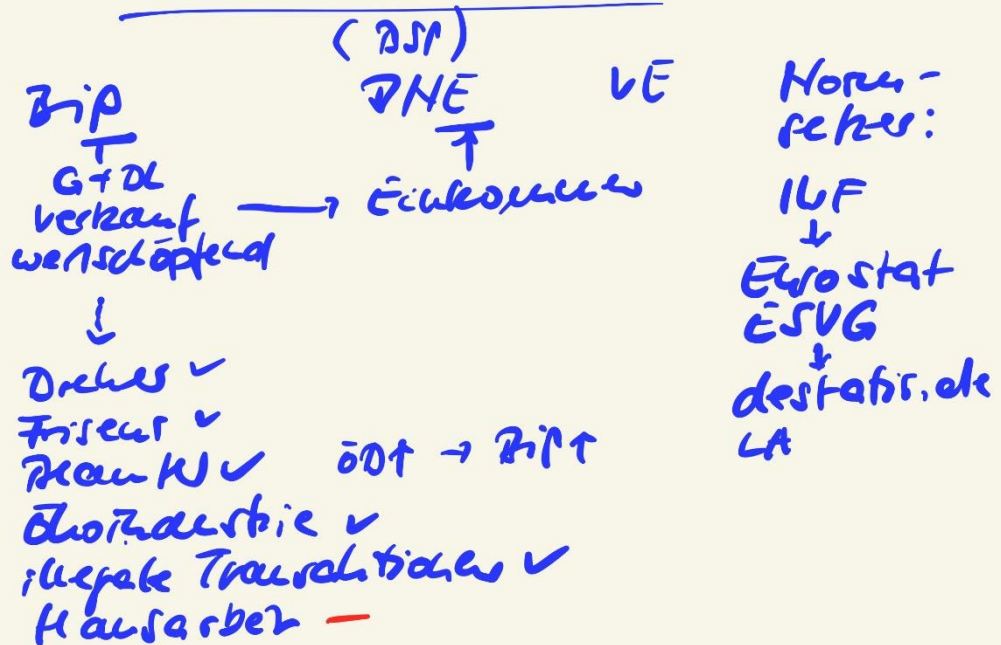 (BSP)
BiP BNE VE
G + DL
verkauf → Einkommen
wertschöpfend
↓
Dreher ✓
Friseur ✓
✓ öD↑ → BiP↑
Ökoindustrie ✓
illegale Transaktionen ✓
Hausarbeit —
Norm-
setzer:
IWF
↓
Eurostat
ESVG
↓
destatis.de
LA